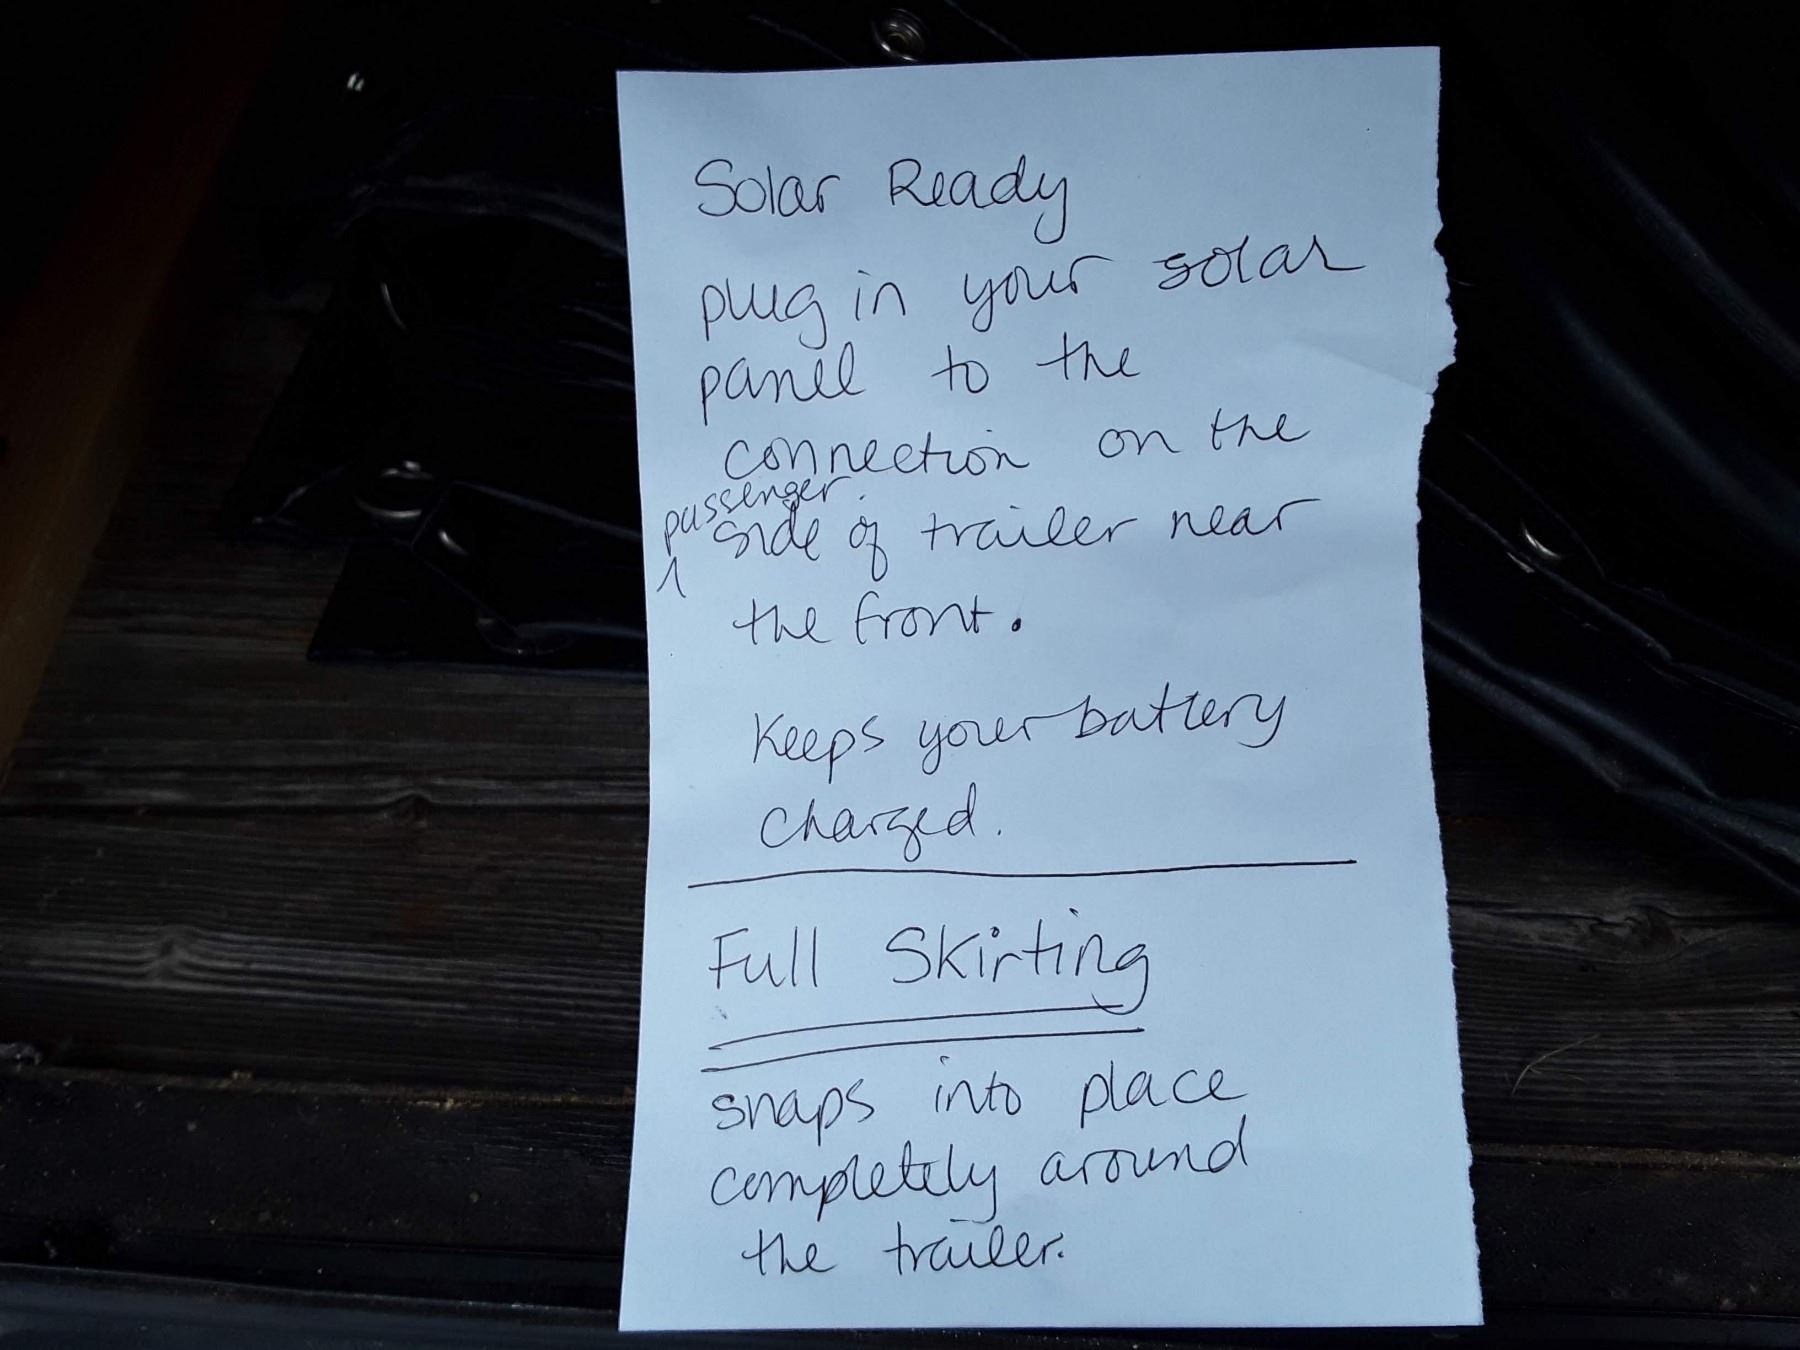 Solar Ready
plug in your solar
panel to the
connection on the
passenger
side of trailer near
the front.
Keeps your battery
charged.
Full Skirting
snaps into place
completely around
the trailer.